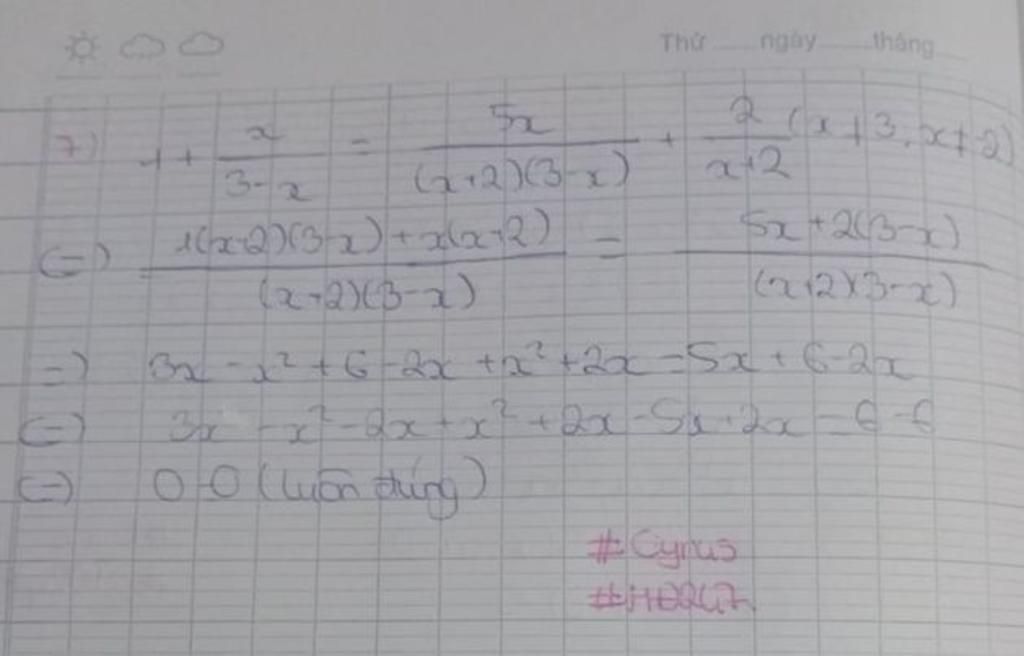 Thứ ngày tháng
7) 1 + x/(3-x) = 5x/((x+2)(3-x)) + 2/(x+2) (x ≠ 3, x ≠ -2)
(=) (1(x+2)(3-x) + x(x+2))/((x+2)(3-x)) = (5x + 2(3-x))/((x+2)(3-x))
=) 3x - x² + 6 - 2x + x² + 2x = 5x + 6 - 2x
(=) 3x - x² - 2x + x² + 2x - 5x + 2x = 6 - 6
(=) 0 = 0 (luôn đúng)
#Cyrus